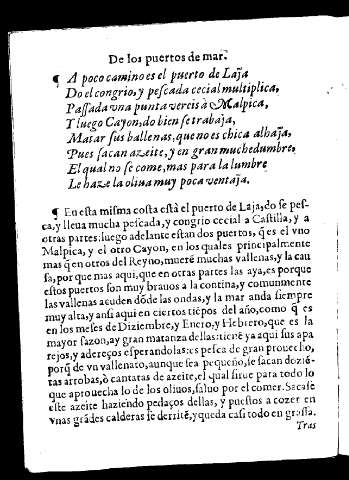 De los puertos de mar.
¶ A poco camino es el puerto de Laſa
Do el congrio, y peſcada cecial multiplica,
Paſſada vna punta vereis à Malpica,
I luego Cayon, do bien ſe trabaja,
Matar ſus ballenas, que no es chica alhaja,
Pues ſacan azeite, y en gran muchedumbre,
El qual no ſe come, mas para la lumbre
Le haze la oliua muy poca ventaja.
¶ En eſta miſma coſta eſtà el puerto de Laja, do ſe peſ-
ca, y lleua mucha peſcada, y congrio cecial a Caſtilla, y a
otras partes: luego adelante eſtan dos puertos, q̃ es el vno
Malpica, y el otro Cayon, en los quales principalmente
mas q̃ en otros del Reyno, mueré muchas vallenas, y la cau
ſa, por que mas aqui, que en otras partes las aya, es porque
eſtos puertos ſon muy brauos a la contina, y comunmente
las vallenas acuden dõde las ondas, y la mar anda ſiempre
muy alta, y anſi aqui en ciertos tiépos del año, como q̃ es
en los meſes de Diziembre, y Enero, y Hebrero, que es la
mayor ſazon, ay gran matanza dellas: tiené ya aqui sus apa
rejos, y adereços eſperandolas: es peſca de gran prouecho,
porq̃ de vn vallenato, aunque ſea pequeño, ſe ſacan dozié-
tas arrobas, ò cantaras de azeite, el qual ſirue para todo lo
que aprouecha lo de los oliuos, ſaluo por el comer. Sacaſe
eſte azeite haziendo pedaços dellas, y pueſtos a cozer en
vnas grãdes calderas ſe derrité, y queda caſi todo en graſſa.
Tras